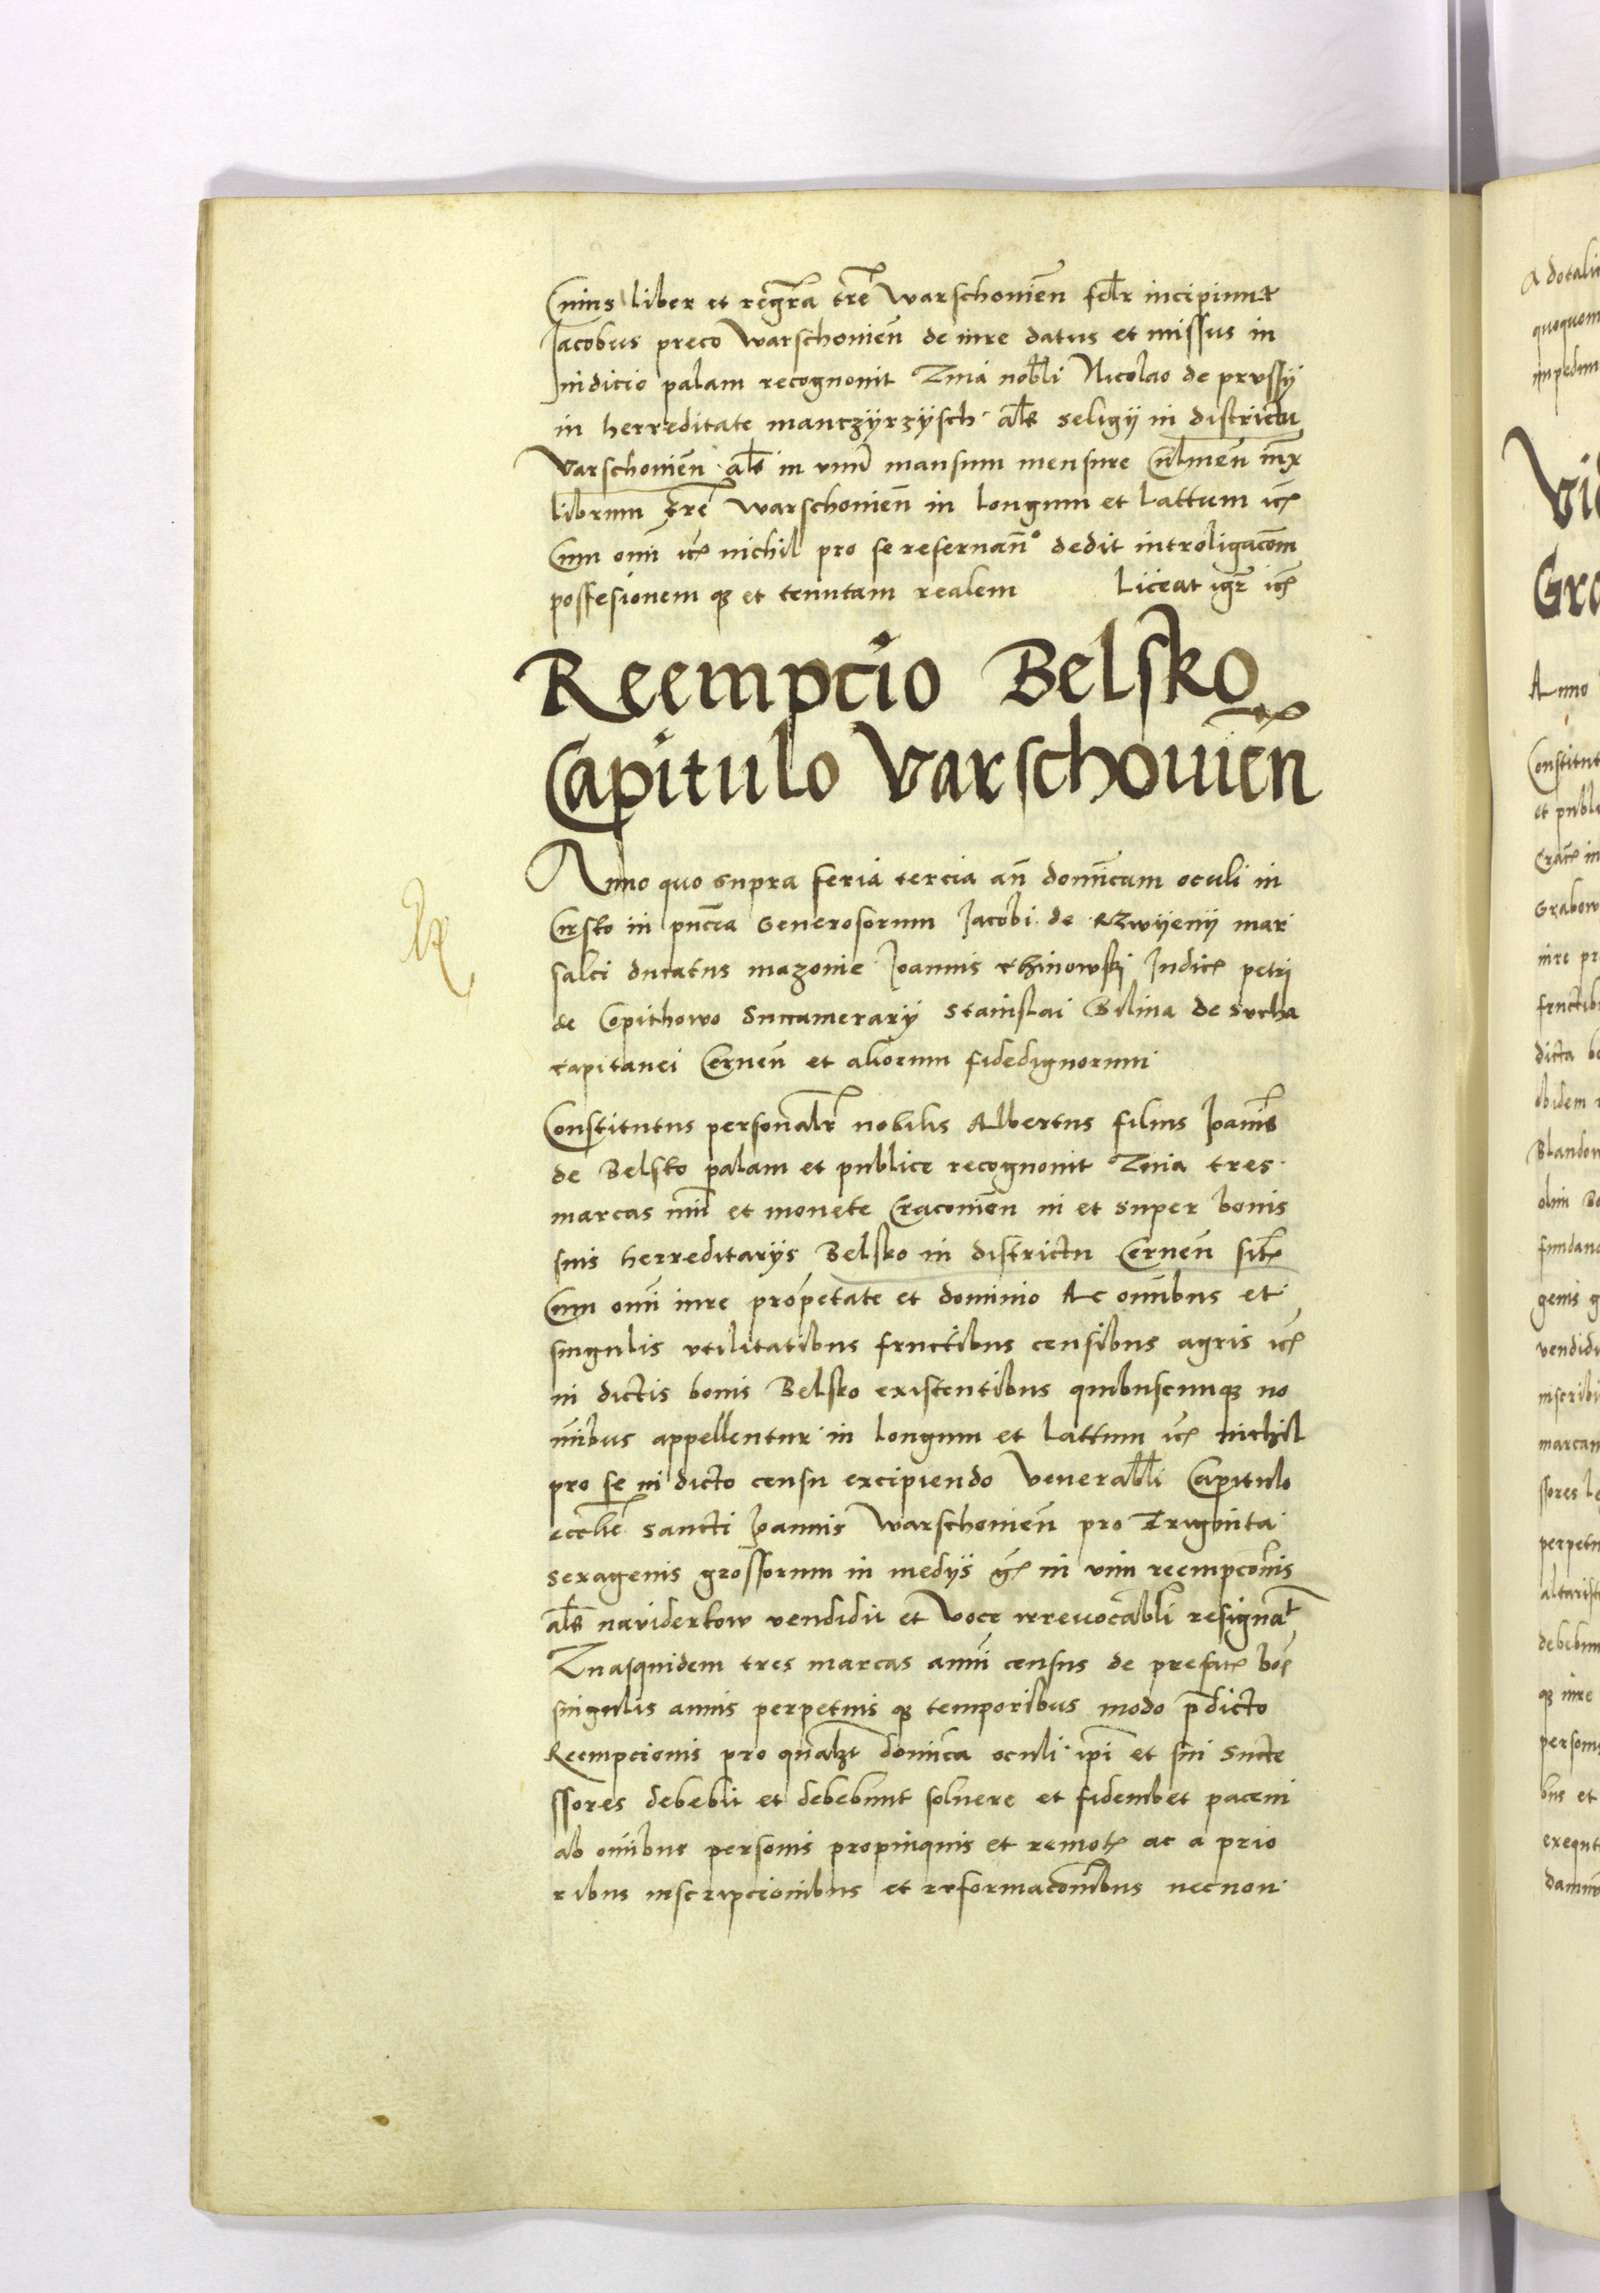 Cuius liber et regrã tre Warschouien felr incipiunt
Jacobus preco Warschouien de iure datus et missus in
iudicio palam recognouit Quia nobli Nicolao de prussy
in herreditate manczyrzysch als seligy in districtu
Varschouien als in vnũ mansum mensure Culmen iux
librum tre Warschouien in longum et lattum ic
Cum omi ic nichil pro se reseruan dedit introligacõm
possesionem q et tenutam realem Liceat igr ic
Reempcio Belsko
Capitulo Varschouien
Anno quo supra feria tercia an domicam oculi in
Crsko in pncia Generosorum Jacobi de Rzwyeny mar
salci ducatus mazouie Joannis rhinowski Judic petri
de Copithowo Succamerary Stanislai Bilina de sucha
capitanei Cernen et aliorum fidedignorum
Constitutus personalr nobilis Albertus filius Joanis
de Belsko palam et publice recognouit Quia tres
marcas nui et monete Cracouien in et super bonis
suis herreditarys Belsko in districtu Cernen sit
Cum omi iure propetate et dominio Ac omibus et
singulis vtilitatibus fructibus censibus agris ic
in dictis bonis Belsko existentibus quibuscunq no
mibus appellentur in longum et lattum ic nichil
pro se in dicto censu excipiendo Venerabli Capitulo
ecclie sancti Joannis Warschouien pro Triginta
sexagenis grossorum in medys g in vim reempcõnis
als naviderkow vendidit et Voce irreuocabli resignat
Quasquidem tres marcas anui census de prefat bo
singulis annis perpetuis q temporibus modo pdicto
Reempcionis pro qualzt domica oculi ipi et sui succe
ssores debebit et debebunt soluere et fidembet pacem
ab omibus personis propinquis et remot ac a prio
ribus inscripcionibus et reformacõnibus necnon